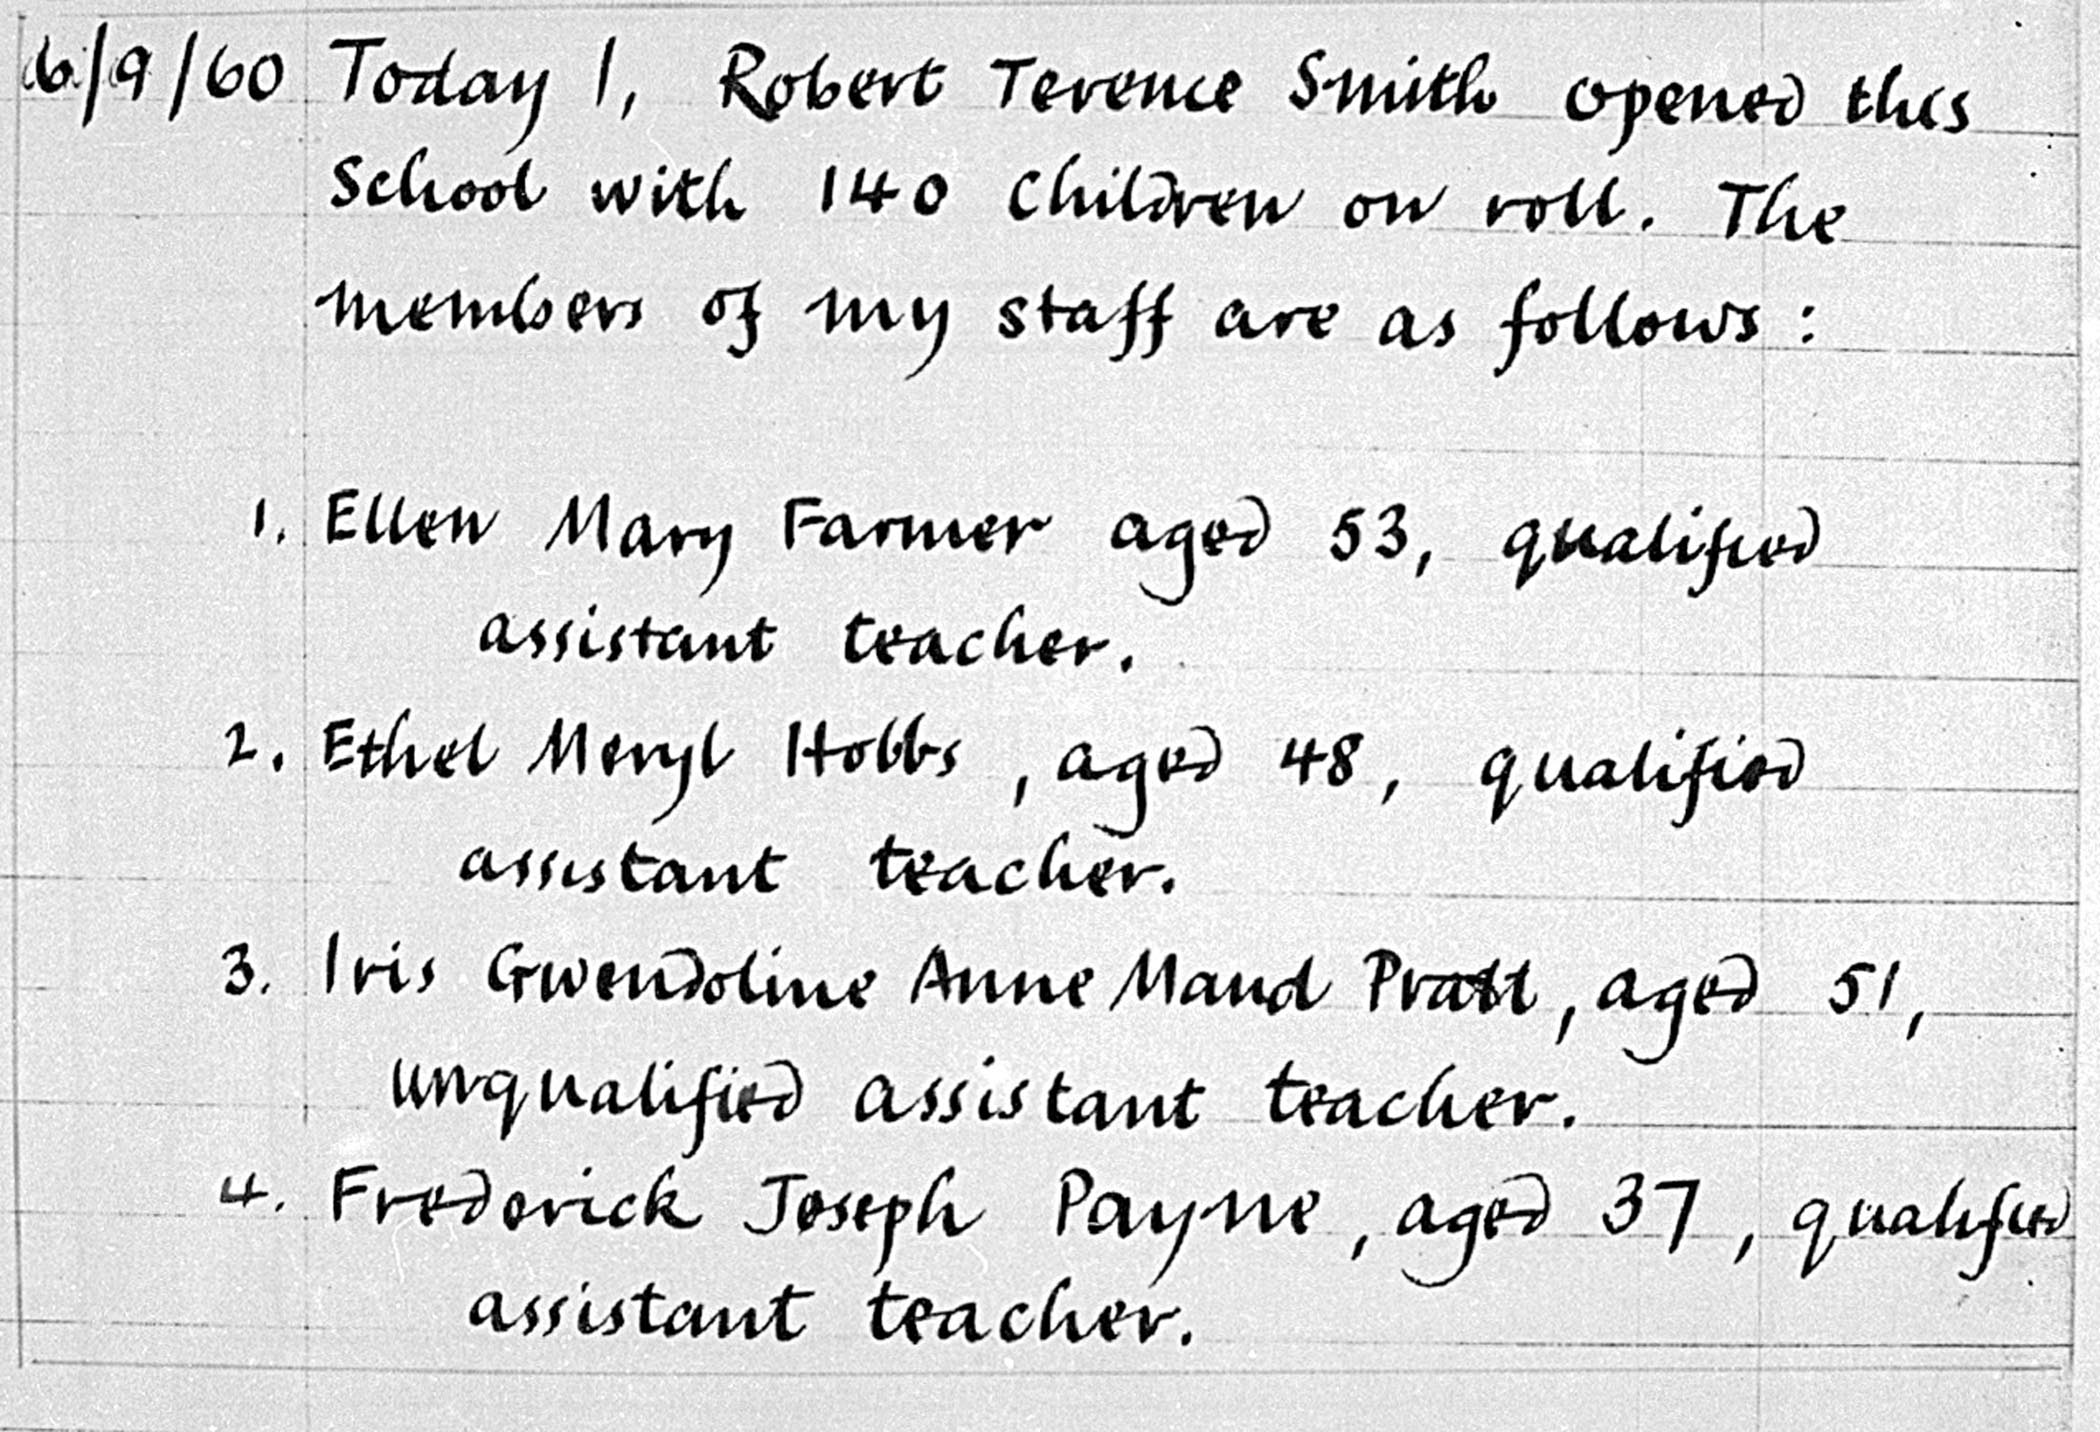 6/9/60 Today I, Robert Terence Smith opened this
School with 140 Children on roll. The
members of my staff are as follows:
1. Ellen Mary Farmer aged 53, qualified
assistant teacher.
2. Ethel Meryl Hobbs, aged 48, qualified
assistant teacher.
3. Iris Gwendoline Anne Maud Pratt, aged 51,
unqualified assistant teacher.
4. Frederick Joseph Payne, aged 37, qualified
assistant teacher.